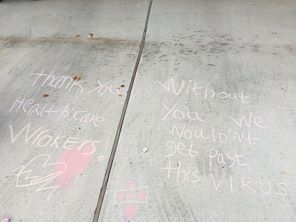 thank you
Healthcare
WORKERS!
Without
You we
wouldn't
get past
this VIRUS